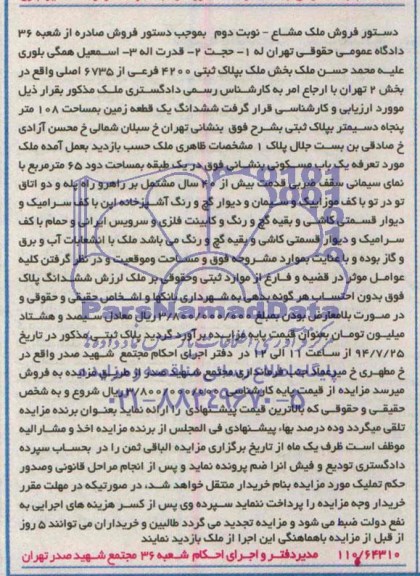 دستور فروش ملک مشاع - نوبت دوم بموجب دستور فروش صادره از شعبه ۳۶
دادگاه عمومی حقوقی تهران له ۱- حجت ۲- قدرت اله ۳- اسمعیل همگی بلوری
علیه محمد حسن ملک بخش ملک بپلاک ثبتی ۴۲۰۰ فرعی از ۶۷۳۵ اصلی واقع در
بخش ۲ تهران با ارجاع امر به کارشناس رسمی دادگستری ملک مذکور بقرار ذیل
موورد ارزیابی و کارشناسی قرار گرفت ششدانگ یک قطعه زمین بمساحت ۱۰۸ متر
پنجاه دسیمتر بپلاک ثبتی بشرح فوق بنشانی تهران خ سبلان شمالی خ محسن آزادی
خ صادقی بن بست جلال پلاک ۱ مشخصات ظاهری ملک حسب بازدید بعمل آمده ملک
مورد تعرفه یک باب مسکونی بنشانی فوق در یک طبقه بمساحت دود ۶۵ مترمربع با
نمای سیمانی سقف ضربی قدمت بیش از ۴۰ سال مشتمل بر راهرو راه پله و دو اتاق
تو در تو با کف موزاییک و سیمان و دیوار گچ و رنگ آشپزخانه اپن با کف سرامیک و
دیوار قسمتی کاشی و بقیه گچ و رنگ و کابینت فلزی و سرویس ایرانی و حمام با کف
سرامیک و دیوار قسمتی کاشی و بقیه گچ و رنگ می باشد ملک با انشعابات آب و برق
و گاز بوده و با عنایت بموارد مشروحه فوق و مساحت وموقعیت و در نظر گرفتن کلیه
عوامل موثر در قضیه و فارغ از موارد ثبتی وحقوقی بر ملک ارزش ششدانگ پلاک
فوق بدون احتساب هر گونه بدهی به شهرداری بانکها و اشخاص حقیقی و حقوقی و
در صورت بلامعارض بودن بمبلغ ۳/۸۰۰/۰۰۰/۰۰۰ ریال معادل سیصد و هشتاد
میلیون تومان بعنوان قیمت پایه مزایده برآورد گردید پلاک ثبتی مذکور در تاریخ
۹۴/۷/۲۵ از ساعت ۱۱ الی ۱۲ در دفتر اجرای احکام مجتمع شهید صدر واقع در
خ مطهری خ میرعماد مزایده به فروش
میرسد مزایده از قیمت پایه کارشناسی ۳/۸۰۰/۰۰۰/۰۰۰ ریال شروع و به شخص
حقیقی و حقوقی که بالاترین قیمت پیشنهادی را ارائه نماید بعنوان برنده مزایده
تلقی میگردد وده درصد بها، پیشنهادی فی المجلس از برنده مزایده اخذ و مشارالیه
موظف است ظرف یک ماه از تاریخ برگزاری مزایده الباقی ثمن را در بحساب سپرده
دادگستری تودیع و فیش انرا ضم پرونده نماید و پس از انجام مراحل قانونی وصدور
حکم تملیک مورد مزایده بنام خریدار منتقل خواهد شد، در صورتیکه در مهلت مقرر
خریدار وجه مزایده را پرداخت ننماید سپرده وی پس از کسر هزینه های اجرایی به
نفع دولت ضبط می شود و مزایده تجدید می گردد طالبین و خریداران می توانند ۵ روز
از قبل از مزایده باهماهنگی این اجرا از ملک بازدید نمایند
۱۱۰/۶۴۳۱۰ مدیردفتر و اجرای احکام شعبه ۳۶ مجتمع شهید صدر تهران
۰۲۱-۸۸۳۴۹۶۷۰-۵